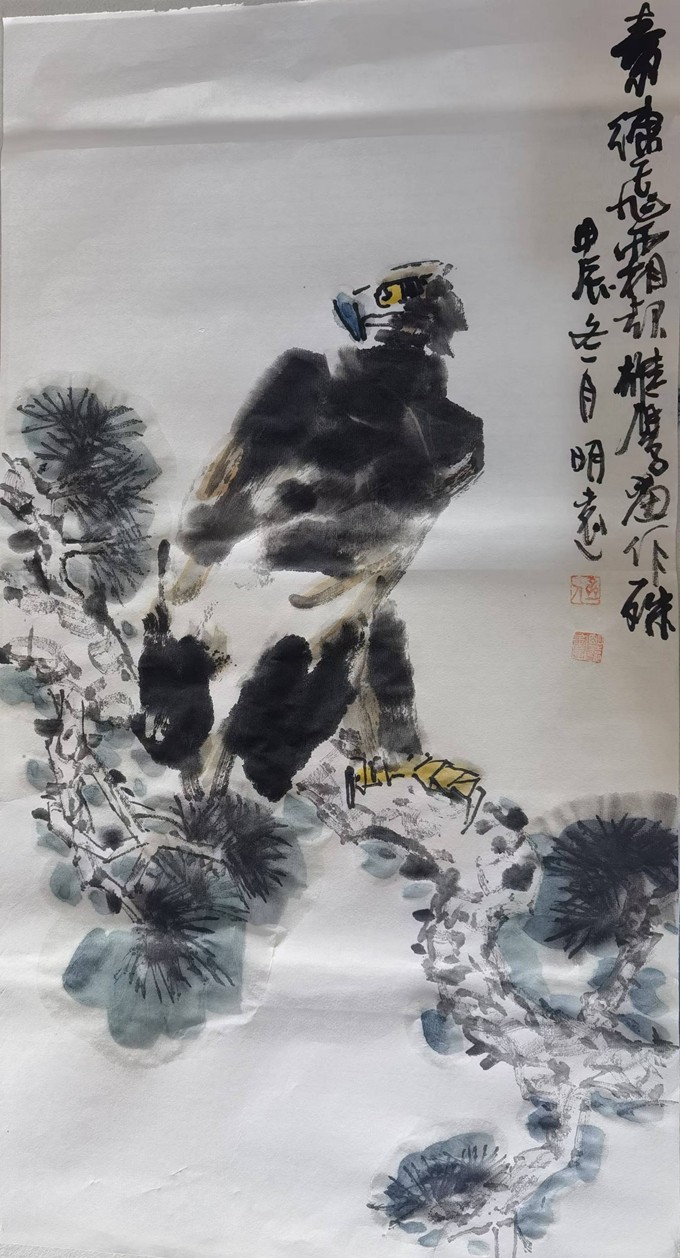 素練風霜起雄鷹画作殊
甲辰冬月明遠